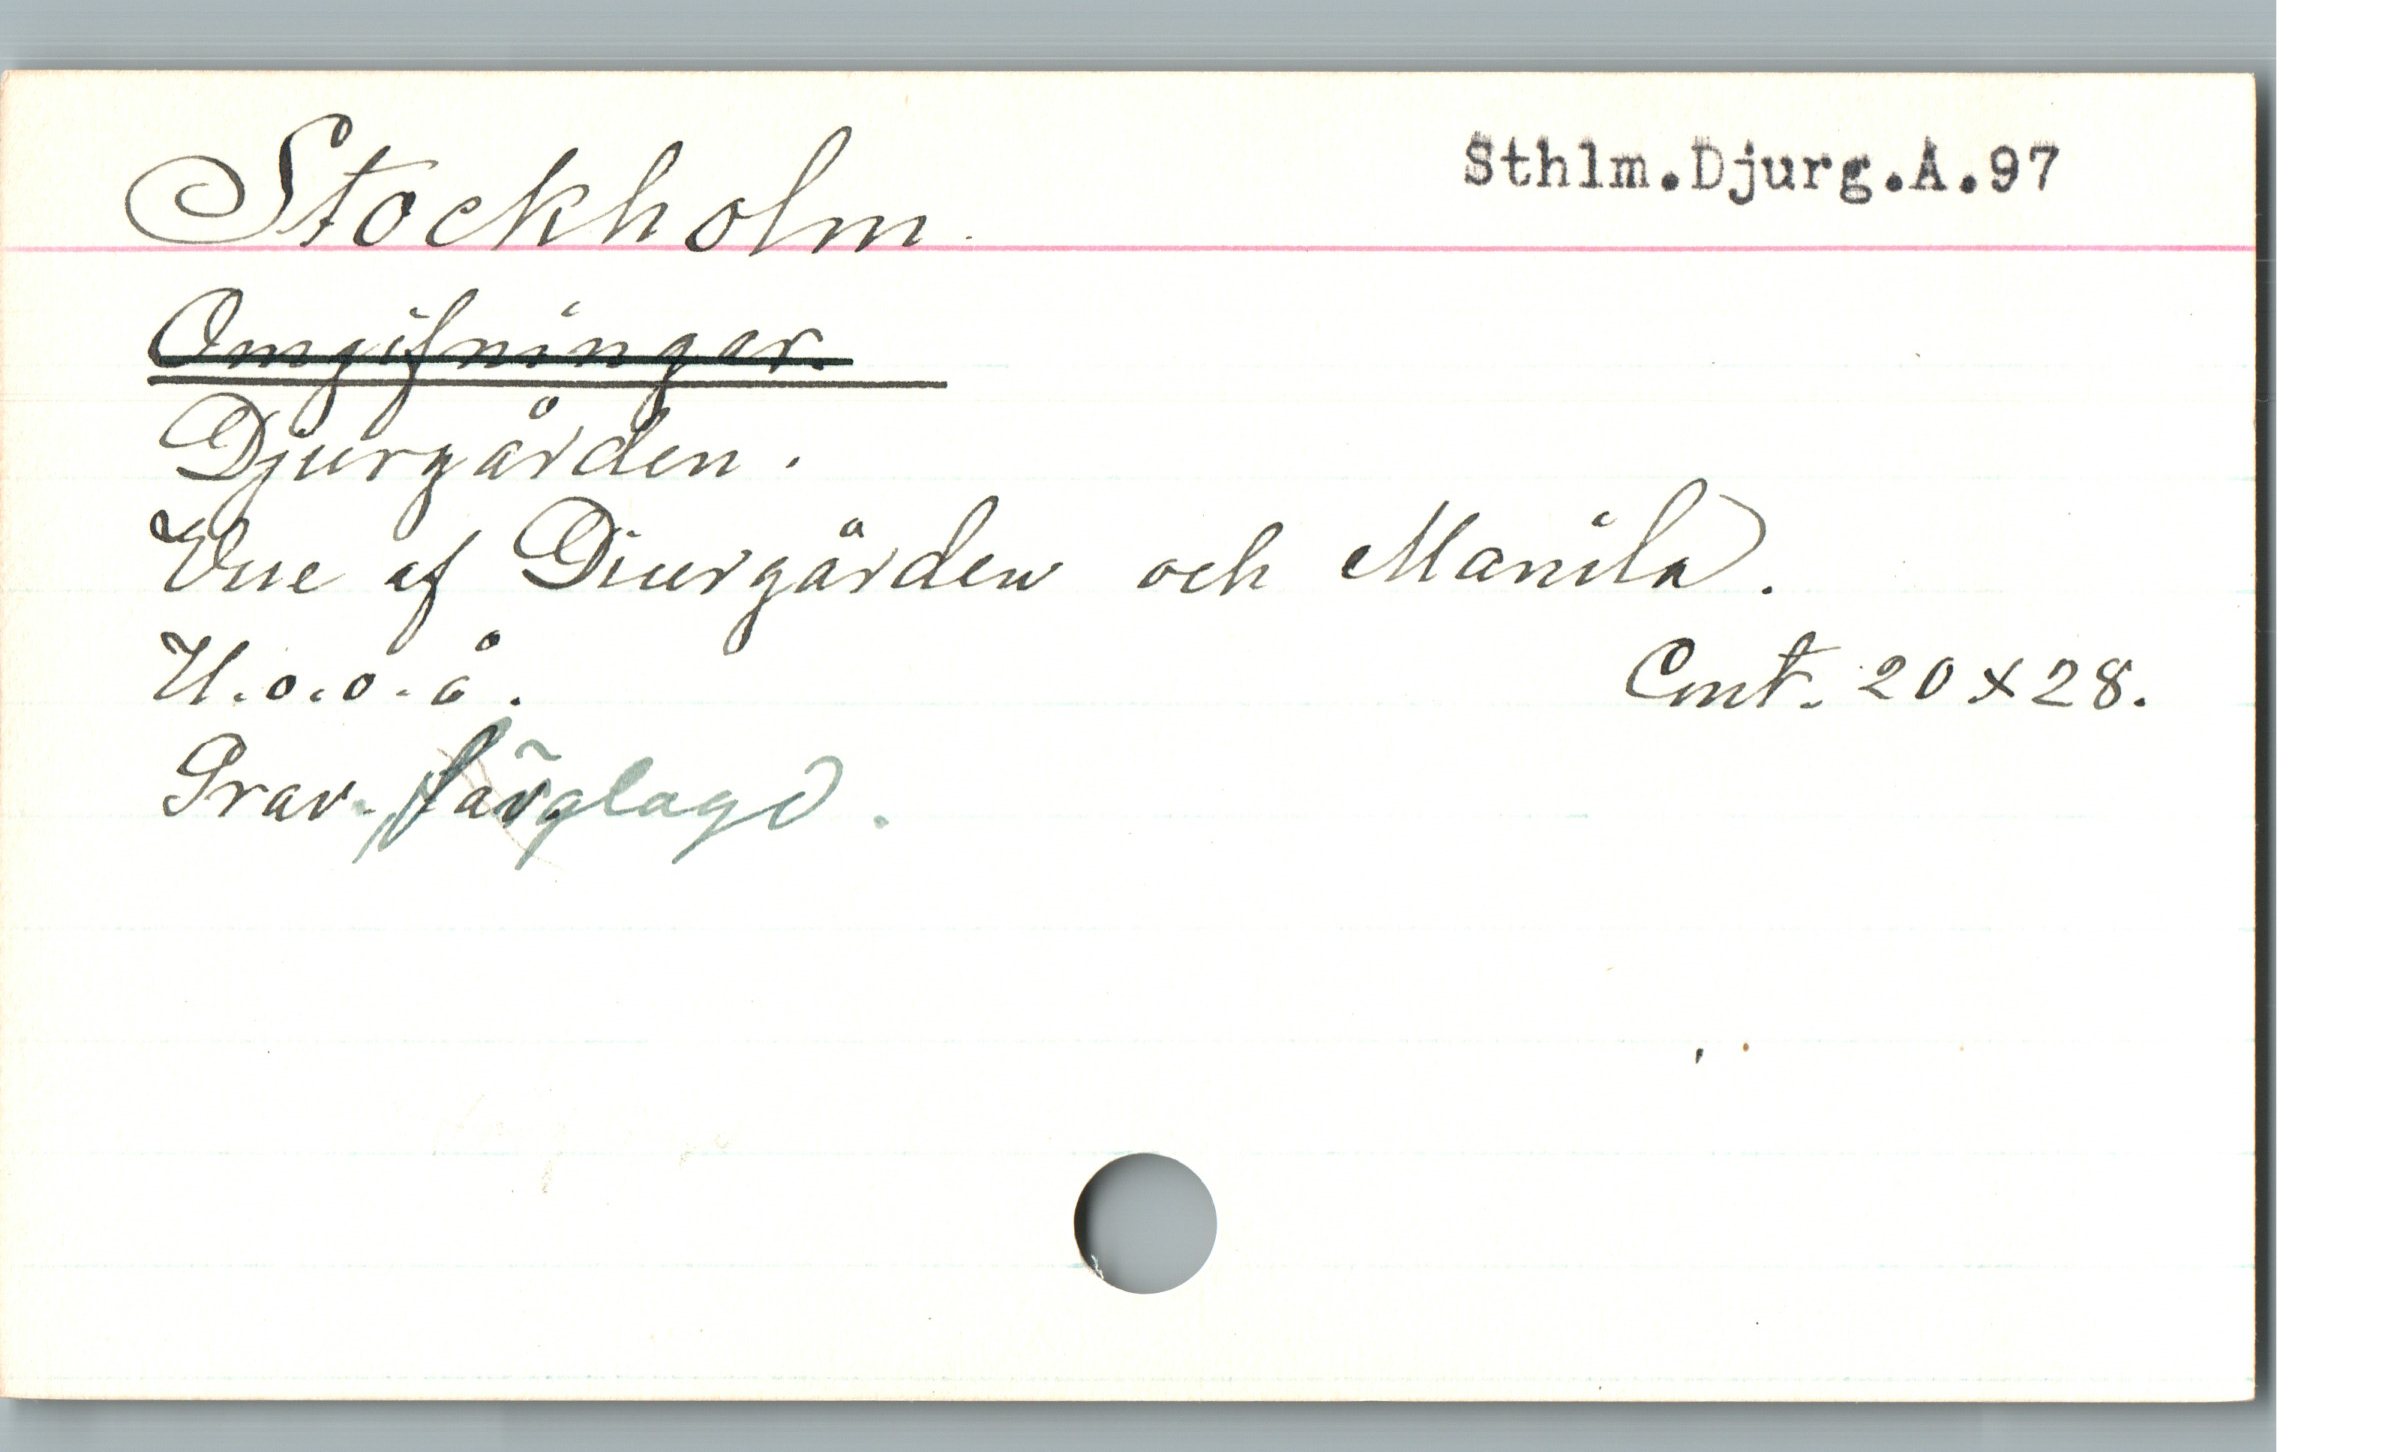 Stockholm. Sthlm.Djurg.A.97
Omgifningar.
Djurgården.
Vue af Diurgården och Manila.
U.o.o.å. Cmt. 20 x 28.
Grav. färglagd.